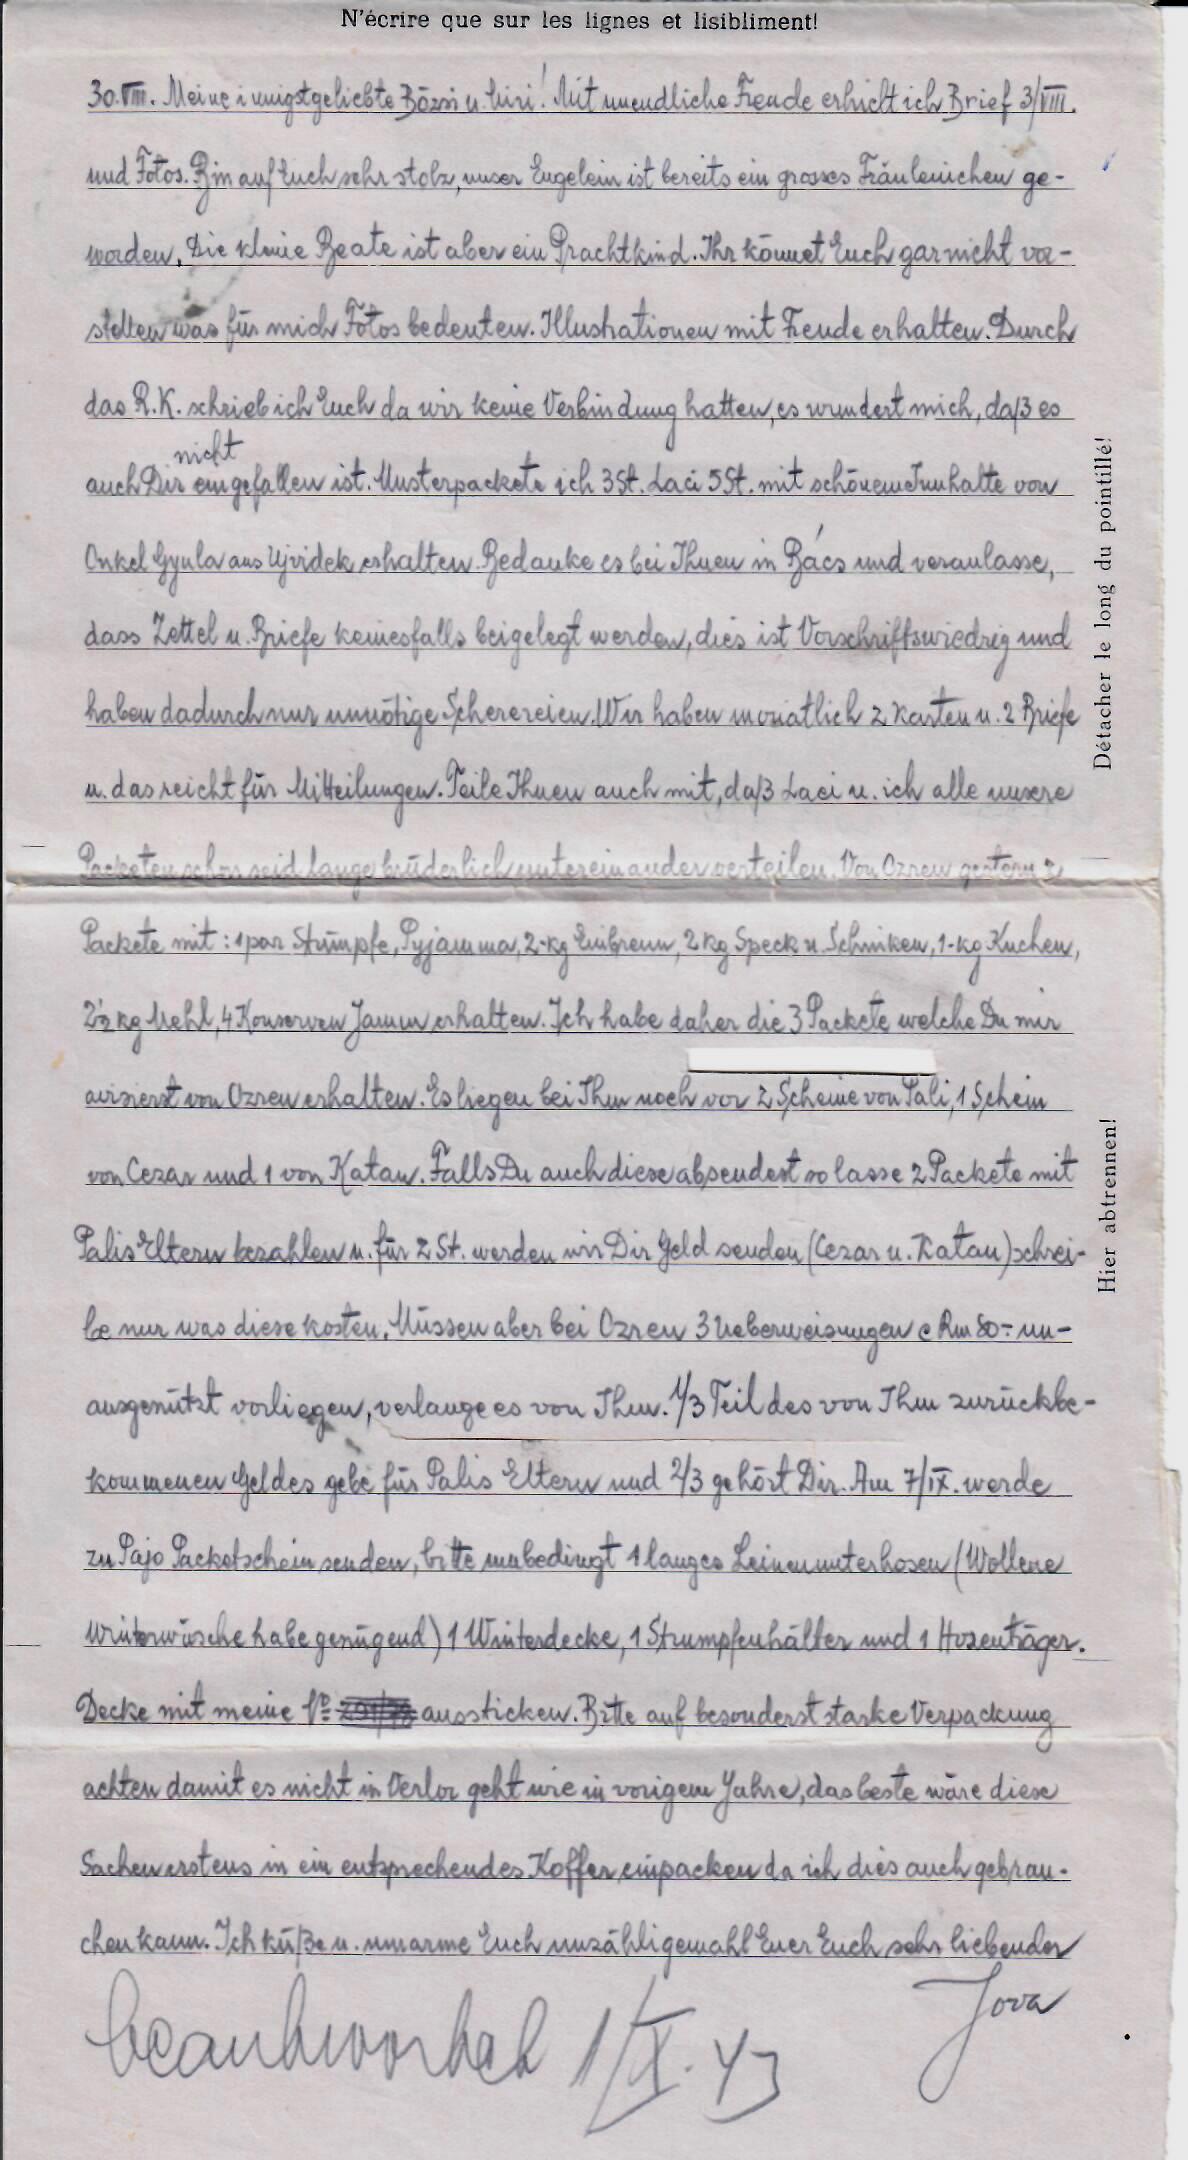 N'écrire que sur les lignes et lisibliment!
30.VIII. Meine innigstgeliebte Bözsi u. Miri! Mit unendliche Freude erhielt ich Brief 3/VIII.
und Fotos. Bin auf Euch sehr stolz, unser Engelein ist bereits ein grosses Fräuleinchen ge-
worden. Die kleine Beate ist aber ein Prachtkind. Ihr könnet Euch gar nicht vor-
stellen was für mich Fotos bedeuten. Illustrationen mit Freude erhalten. Durch
das R.K. schrieb ich Euch da wir keine Verbindung hatten, es wundert mich, daß es
nicht
auch Dir eingefallen ist. Musterpackete ich 3 St. Laci 5 St. mit schönem Innhalte von
Onkel Gyula aus Ujvidek erhalten. Bedanke es bei Ihnen in Bács und veranlasse,
dass Zettel u. Briefe keinesfalls beigelegt werden, dies ist Vorschriftswiedrig und
haben dadurch nur unnötige Scherereien. Wir haben monatlich 2 Karten u. 2 Briefe
u. das reicht für Mitteilungen. Teile Ihnen auch mit, daß Laci u. ich alle unsere
Packeten schon seid lange brüderlich untereinander verteilen. Von Ozren gestern 2
Packete mit: 1 par Strümpfe, Pyjamma, 2-kg Einbrenn, 2 kg Speck u. Schinken, 1-kg Kuchen,
2½ kg Mehl, 4 Konserven Jamm erhalten. Ich habe daher die 3 Packete welche Du mir
avisierst von Ozren erhalten. Es liegen bei Ihm noch vor 2 Scheine von Pali, 1 Schein
von Cezar und 1 von Katan. Falls Du auch diese absendest so lasse 2 Packete mit
Palis Eltern bezahlen u. für 2 St. werden wir Dir Geld senden (Cezar u. Katan) schrei-
be nur was diese kosten. Müssen aber bei Ozren 3 Ueberweisungen e Rm 80.- un-
ausgenützt vorliegen, verlange es von Ihm. 1/3 Teil des von Ihm zurückbe-
kommenen Geldes gebe für Palis Eltern und 2/3 gehört Dir. Am 7/IX. werde
zu Pajo Packetschein senden, bitte unbedingt 1 langes Leinenunterhosen (Wollene
Winterwäsche habe genügend) 1 Winterdecke, 1 Strumpfenhälter und 1 Hosenträger.
Decke mit meine No aussticken. Bitte auf besonderst starke Verpackung
achten damit es nicht in Verlor geht wie in vorigem Jahre, das beste wäre diese
Sachen erstens in ein entsprechendes Koffer einpacken da ich dies auch gebrau-
chen kann. Ich küße u. umarme Euch unzähligemahl Euer Euch sehr liebender
Jova
beantwortet 1/X. 43
Détacher le long du pointillé!
Hier abtrennen!